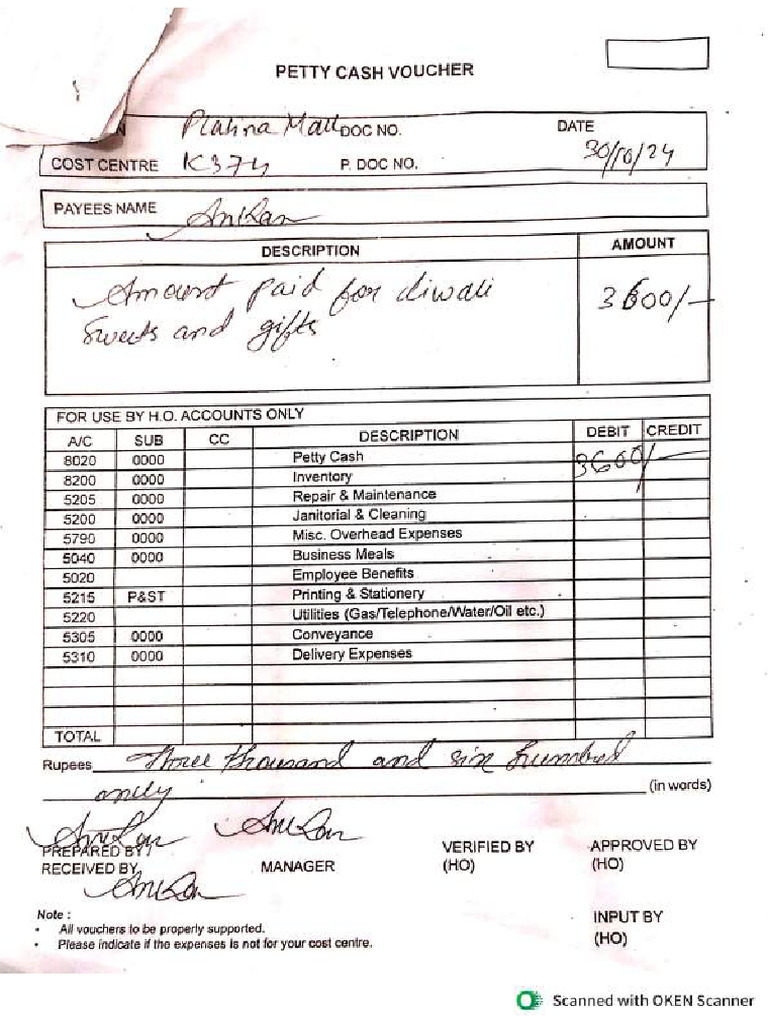 PETTY CASH VOUCHER
N Platina Mall DOC NO. DATE
30/10/24
COST CENTRE K374 P. DOC NO.
PAYEES NAME
DESCRIPTION AMOUNT
Amount paid for diwali 3600/-
Sweets and gifts
FOR USE BY H.O. ACCOUNTS ONLY
A/C SUB CC DESCRIPTION DEBIT CREDIT
8020 0000 Petty Cash 3600/-
8200 0000 Inventory
5205 0000 Repair & Maintenance
5200 0000 Janitorial & Cleaning
5790 0000 Misc. Overhead Expenses
5040 0000 Business Meals
5020 Employee Benefits
5215 P&ST Printing & Stationery
5220 Utilities (Gas/Telephone/Water/Oil etc.)
5305 0000 Conveyance
5310 0000 Delivery Expenses
TOTAL
Rupees Three thousand and six hundred
only (in words)
PREPARED BY / VERIFIED BY APPROVED BY
RECEIVED BY MANAGER (HO) (HO)
Note :
• All vouchers to be properly supported. INPUT BY
• Please indicate if the expenses is not for your cost centre. (HO)
Scanned with OKEN Scanner